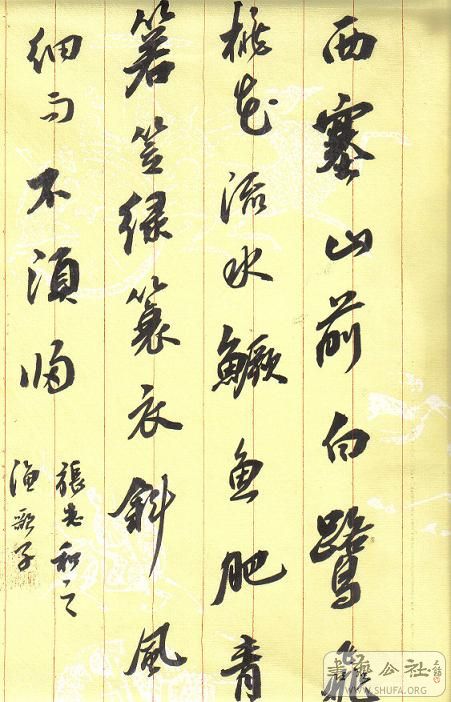 西塞山前白鹭飞
桃花流水鳜鱼肥青
箬笠绿蓑衣斜风
细雨不须归
张志和之
渔歌子
书法公社
WWW.SHUFA.ORG